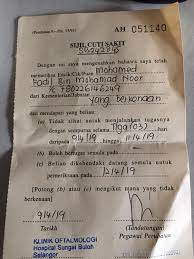 AH 051140
SIJIL CUTI SAKIT
Dengan ini saya mengesahkan bahawa saya telah
memeriksa Encik/Cik/Puan Mohamed
Fadil Bin Mohamad Noor
dari Kementerian/Jabatan
yang berkenaan
dan berpendapat bahawa
(a) Tidak sihat untuk menjalankan tugasnya
dengan sempurna selama Tiga (03) hari
daripada 9/4/19 hingga 11/4/19
(b) Boleh bertugas semula pada
(c) Beliau dikehendaki datang semula untuk
pemeriksaan pada 12/4/19
[Potong (b) atau (c) mengikut mana yang tidak
berkenaan]
9/4/19
Tarikh (Tandatangan)
Pegawai Perubatan
KLINIK OFTALMOLOGI
Hospital Sungai Buloh
Selangor